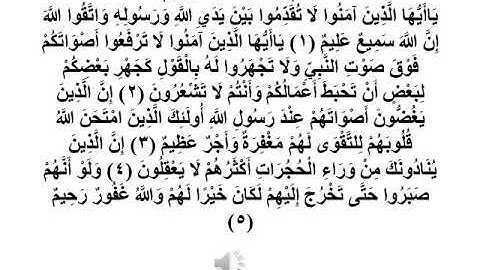 يَاأَيُّهَا الَّذِينَ آمَنُوا لَا تُقَدِّمُوا بَيْنَ يَدَيِ اللَّهِ وَرَسُولِهِ وَاتَّقُوا اللَّهَ
إِنَّ اللَّهَ سَمِيعٌ عَلِيمٌ (١) يَاأَيُّهَا الَّذِينَ آمَنُوا لَا تَرْفَعُوا أَصْوَاتَكُمْ
فَوْقَ صَوْتِ النَّبِيِّ وَلَا تَجْهَرُوا لَهُ بِالْقَوْلِ كَجَهْرِ بَعْضِكُمْ
لِبَعْضٍ أَنْ تَحْبَطَ أَعْمَالُكُمْ وَأَنْتُمْ لَا تَشْعُرُونَ (٢) إِنَّ الَّذِينَ
يَغُضُّونَ أَصْوَاتَهُمْ عِنْدَ رَسُولِ اللَّهِ أُولَئِكَ الَّذِينَ امْتَحَنَ اللَّهُ
قُلُوبَهُمْ لِلتَّقْوَى لَهُمْ مَغْفِرَةٌ وَأَجْرٌ عَظِيمٌ (٣) إِنَّ الَّذِينَ
يُنَادُونَكَ مِنْ وَرَاءِ الْحُجُرَاتِ أَكْثَرُهُمْ لَا يَعْقِلُونَ (٤) وَلَوْ أَنَّهُمْ
صَبَرُوا حَتَّى تَخْرُجَ إِلَيْهِمْ لَكَانَ خَيْرًا لَهُمْ وَاللَّهُ غَفُورٌ رَحِيمٌ
(٥)